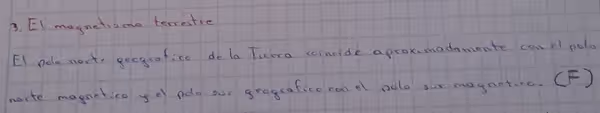 3. El magnetismo terrestre
El polo norte geografico de la Tierra coincide aproximadamente con el polo
norte magnetico y el polo sur geografico con el polo sur magnetico. (F)